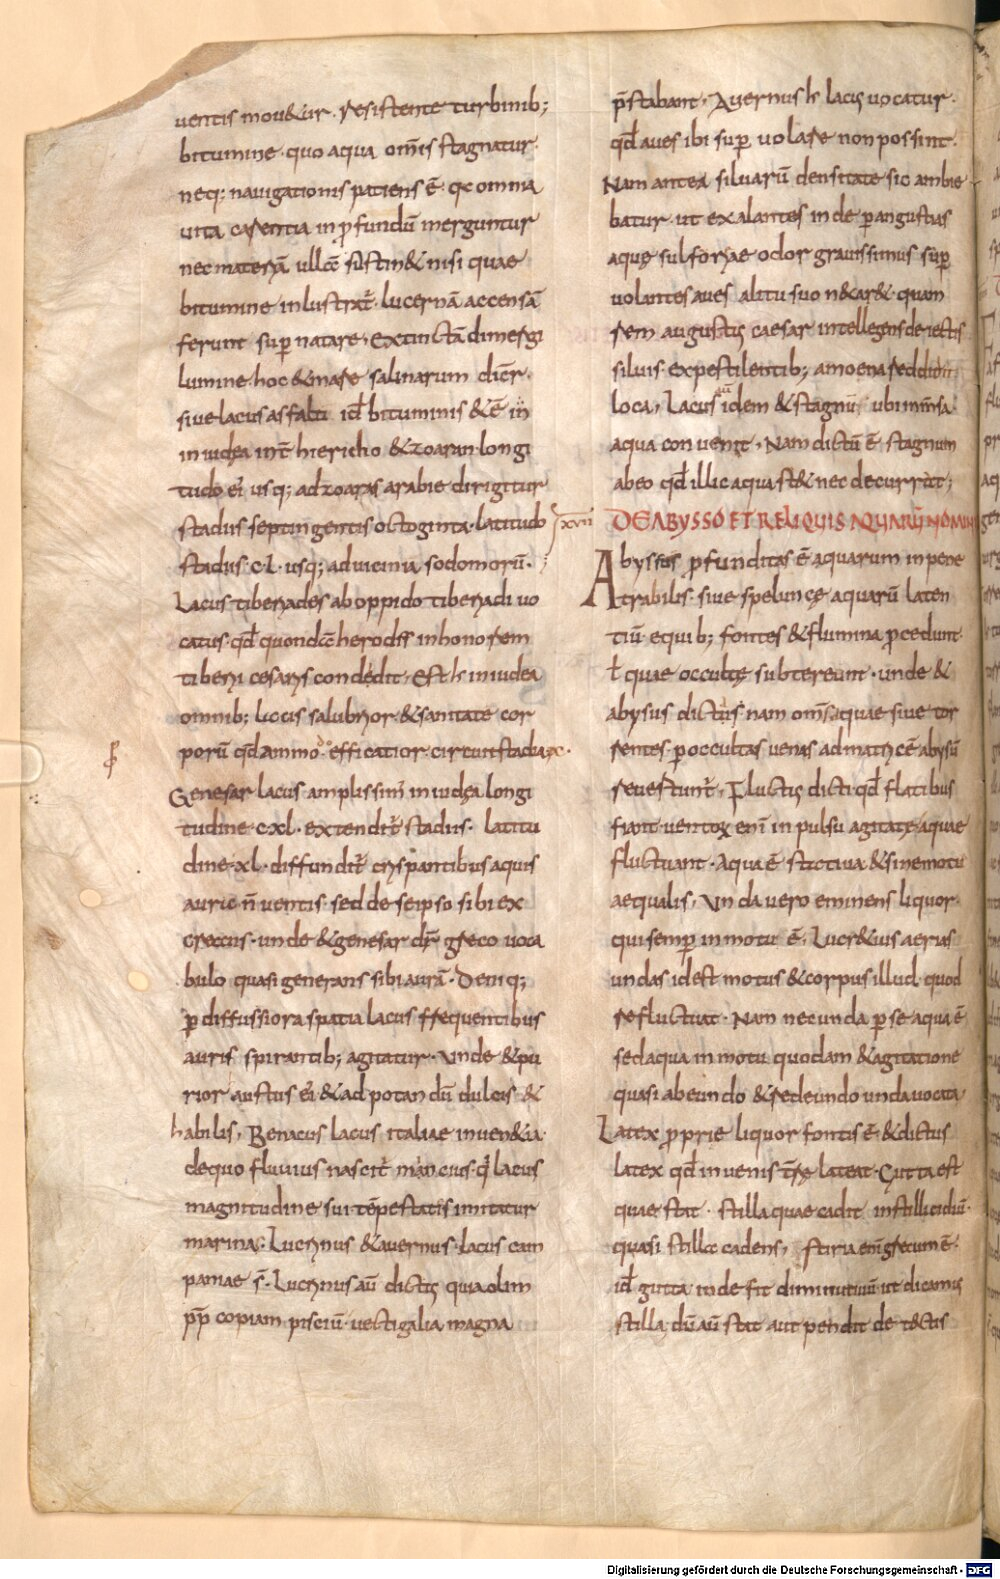 uentis mou&ur. resistente turbinib;
bitumine. quo aqua om̅is stagnatur.
neq; nauigationis patiens ē. qc omnia
uita carentia in ꝓfundū merguntur
nec materiā ullā sustin& nisi quae
bitumine inlustrat̄. lucernā accensā
ferunt suꝑ natare, extinctā dimergi
lumine. hoc & mare salinarum dicr̄.
siue lacus asfalti id̄ bituminis & ē in
in iudea int̄ hiericho & zoaran. longi
tudo ei usq; ad zoaras arabie dirigitur
stadiis septingentis octoginta. latitudo
stadiis. cl. usq; ad uiciniā sodomorū.
Lacus tiberiades ab oppido tiberiadi uo
catus. qd̄ quondā herodes in honorem
tiberii cesaris condedit, Est h in iudea
omnib; lacis salubrior & sanitate cor
porū qd̄ ammodo efficatior. circū stadia xc.
Genesar lacus amplissim̄ in iudea longi
tudine cxl. extendit̄ stadiis. latitu
dine. xl. diffundit̄ crispantibus aquis
auric n̄ uentis. sed de seipso sibi ex
creccus. unde & genesar dr̄ greco uoca
bulo quasi generans sibi aurā. Deniq;
ꝑ diffussiora spatia lacus frequentibus
auris spirantib; agitatur. unde & pu
rior austus ei & ad potandū dulcis &
habilis, Benacus lacus italiae in uen&ia
de quo fluuius nascit̄ mancius. q̄ lacus
magnitudine sui tēpestatis imitatur
marinas. Lucrinus & auernus. lacus cam
paniae s̄. Lucrinus aū dictus quia olim
pp̄ copiam. pisciū. uectigalia magna
p̄stabant. Auernus h lacus uocatur.
qd̄ aues ibi suꝑ uolare non possint.
Nam antea siluarū densitate sic ambie
batur. ut exalantes inde ꝑ angustias
aquę sulforiae odor grauissimus suꝑ
uolantes aues alitu suo n&ar&. quam
rem augustus caesar intellegens deiectis
siluis. ex pestilentib; amoena reddidit
loca, Lacus aū idem & stagnū ubi inm̄sa
aqua conuenit, Nam dictū ē stagnum
ab eo qd̄ illic aqua st& nec decurrat;
xvii DE ABYSSO ET RELIQUIS AQUARŪ NOMIN
Abyssus ꝓfunditas ē aquarum inpene
trabilis. siue speluncę aquarū laten
tiū e quib; fontes & flumina ꝓcedunt.
ł quae occultę subtereunt. unde &
abysus dictus nam om̄s aquae siue tor
rentes. ꝑ occultas uenas ad matricē abysū
reuertunt̄, Fluctus dicti qd̄ flatibus
fiant. uentoꝝ eni̅ inpulsu agitate aquae
fluctuant. Aqua ē stctiua & sine motu
aequalis, Unda uero eminens liquor.
qui semꝑ in motu ē, Lucr&ius aerias
undas id est motus & corpus illud quod
refluctuat. Nam nec unda ꝑ se aqua ē
sed aqua in motu quodam & agitatione
quasi ab eundo & redeundo unda uocata.
Latex ꝓprie liquor fontis ē. & dictus
latex qd̄ in uenis t̄rę lateat. Gutta est
quae stat. stilla quae cadit instillicidiū.
quasi stilla cadens, stiria eni̅ grecum ē.
id̄ gutta inde fit diminutiuū ut dicamus
stilla, dū aū stat aut pendit de t&tis